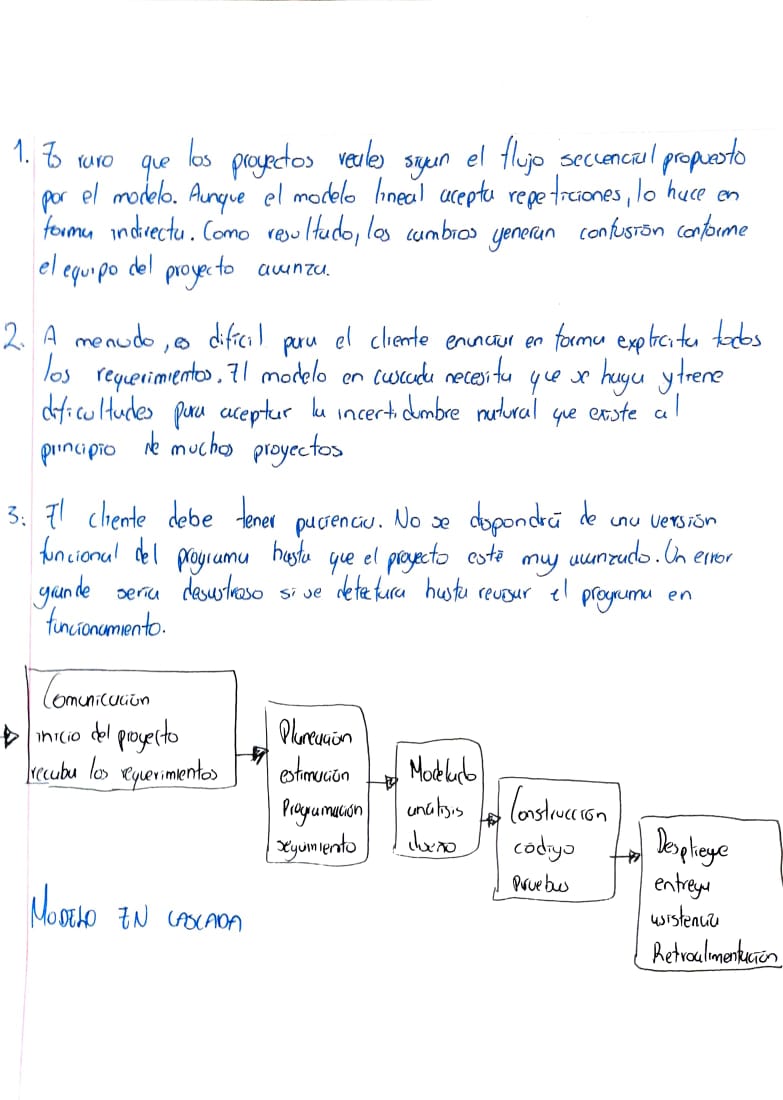 1. Es raro que los proyectos reales sigan el flujo secuencial propuesto
por el modelo. Aunque el modelo lineal acepta repeticiones, lo hace en
forma indirecta. Como resultado, los cambios generan confusión conforme
el equipo del proyecto avanza.
2. A menudo, es difícil para el cliente enunciar en forma explicita todos
los requerimientos. El modelo en cascada necesita que se haga y tiene
dificultades para aceptar la incertidumbre natural que existe al
principio de muchos proyectos
3. El cliente debe tener paciencia. No se dispondrá de una versión
funcional del programa hasta que el proyecto esté muy avanzado. Un error
grande sería desastroso si se detectara hasta revisar el programa en
funcionamiento.
Comunicación
inicio del proyecto
recaba los requerimientos
Planeación
estimación
Programación
seguimiento
Modelado
análisis
diseño
Construcción
código
Pruebas
Despliegue
entrega
asistencia
Retroalimentación
MODELO EN CASCADA